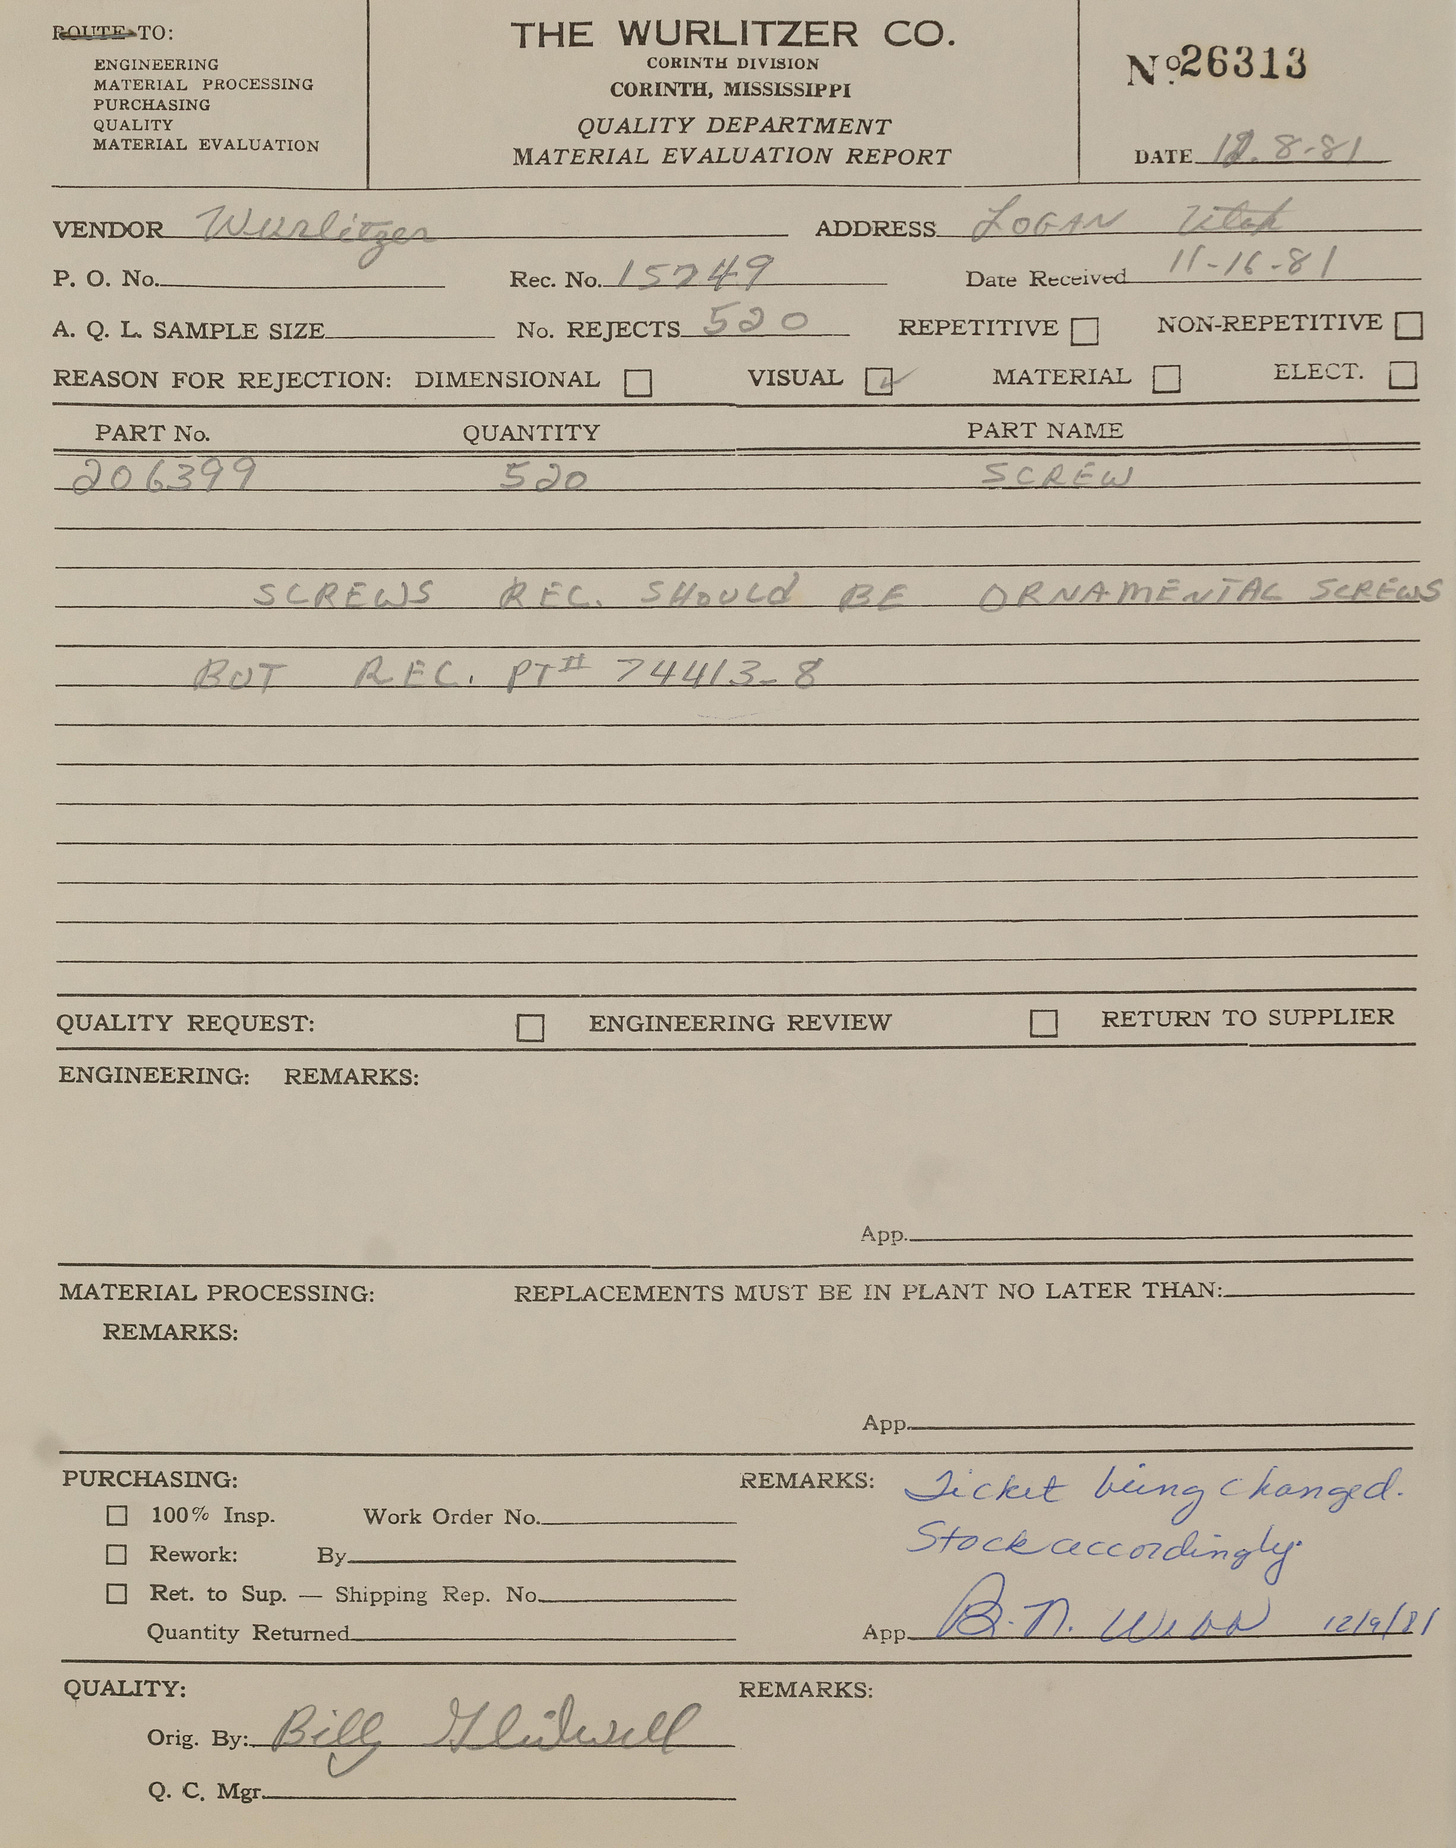 ROUTE TO:
ENGINEERING
MATERIAL PROCESSING
PURCHASING
QUALITY
MATERIAL EVALUATION
THE WURLITZER CO.
CORINTH DIVISION
CORINTH, MISSISSIPPI
QUALITY DEPARTMENT
MATERIAL EVALUATION REPORT
No. 26313
DATE 12.8-81
VENDOR Wurlitzer ADDRESS LOGAN Utah
P. O. No. Rec. No. 15749 Date Received 11-16-81
A. Q. L. SAMPLE SIZE No. REJECTS 520 REPETITIVE NON-REPETITIVE
REASON FOR REJECTION: DIMENSIONAL VISUAL ✓ MATERIAL ELECT.
PART No. QUANTITY PART NAME
206399 520 SCREW
SCREWS REC. SHOULD BE ORNAMENTAL SCREWS
BUT REC. PT# 74413-8
QUALITY REQUEST: ENGINEERING REVIEW RETURN TO SUPPLIER
ENGINEERING: REMARKS:
App.
MATERIAL PROCESSING: REPLACEMENTS MUST BE IN PLANT NO LATER THAN:
REMARKS:
App.
PURCHASING: REMARKS: Ticket being changed.
100% Insp. Work Order No. Stock accordingly.
Rework: By
Ret. to Sup. — Shipping Rep. No.
Quantity Returned App. B. N. Webb 12/9/81
QUALITY: REMARKS:
Orig. By: Billy
Q. C. Mgr.